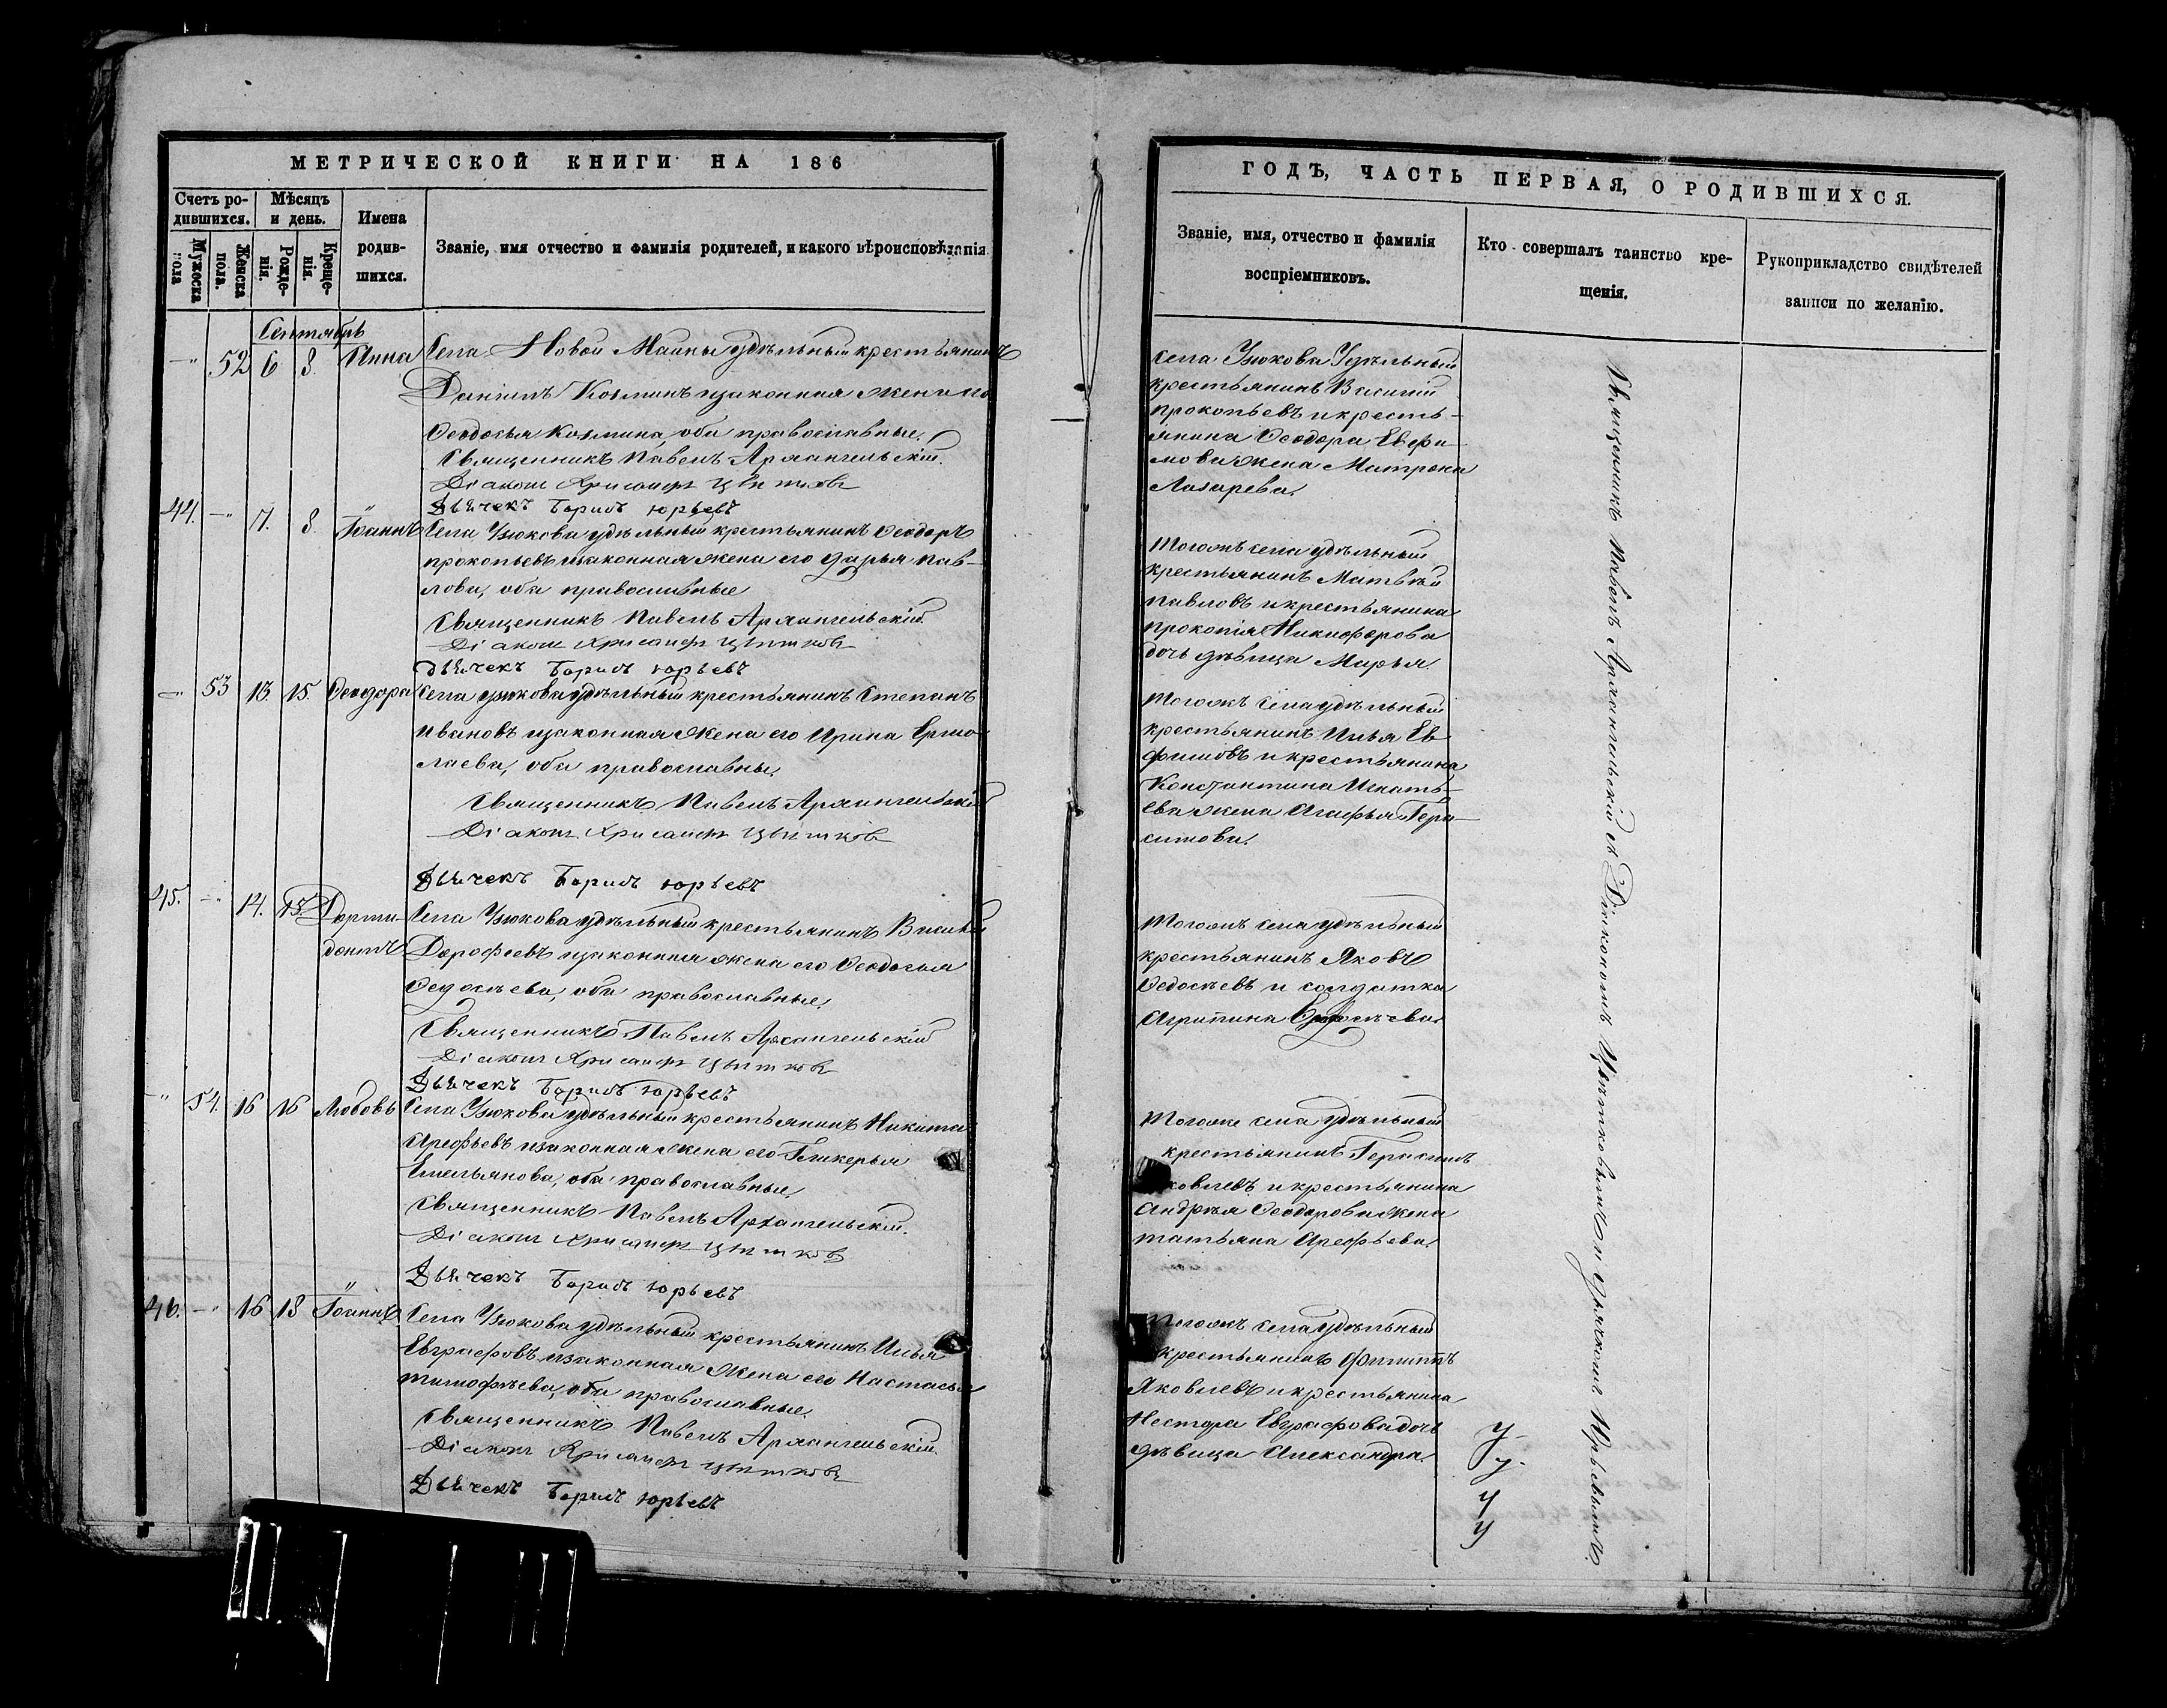 МЕТРИЧЕСКОЙ КНИГИ НА 186
Счетъ ро-
дившихся.
Мѣсяцъ
и день.
Имена
родив-
шихся.
Званіе, имя отчество и фамилія родителей, и какого вѣроисповѣданія
Мужеска
пола
Женска
пола.
Рожде-
нія.
Креще-
нія.
Сентябрь
—" 52 6 8. Анна Села Новой Маины удѣльный крестьянинъ
Даніилъ Козминъ и законная жена его
Ѳеодосья Козмина, оба православные.
Священникъ Павелъ Архангельскій.
Діаконъ Хрисанфъ Цвѣтковъ
Дьячекъ Борисъ Юрьевъ
44. —" 7. 8 Іоаннъ Села Узюкова удѣльный крестьянинъ Ѳеодоръ
Прокопьевъ и законная жена его Дарья Пав-
лова, оба православные
Священникъ Павелъ Архангельскій
Діаконъ Хрисанфъ Цвѣтковъ
Дьячекъ Борисъ Юрьевъ
—" 53 13. 15. Ѳеодора Села Узюкова удѣльный крестьянинъ Степанъ
Ивановъ и законная жена его Ирина Ермо-
лаева, оба православны.
Священникъ Павелъ Архангельскій
Діаконъ Хрисанфъ Цвѣтковъ
Дьячекъ Борисъ Юрьевъ
45. —" 14. 15. Дорми-
донтъ Села Узюкова удѣльный крестьянинъ Василій
Дорофеевъ и законная жена его Ѳеодосья
Ѳедосѣева, оба православные.
Священникъ Павелъ Архангельскій
Діаконъ Хрисанфъ Цвѣтковъ
Дьячекъ Борисъ Юрьевъ
—" 54. 16 16 Любовь Села Узюкова удѣльный крестьянинъ Никита
Арефьевъ и законная жена его Гликерья
Емельянова, оба православные.
Священникъ Павелъ Архангельскій.
Діаконъ Хрисанфъ Цвѣтковъ
Дьячекъ Борисъ Юрьевъ
46. —" 16 18 Іоаннъ Села Узюкова удѣльный крестьянинъ Илья
Евграфовъ и законная жена его Настасья
Тимофѣева, оба православные.
Священникъ Павелъ Архангельскій.
Діаконъ Хрисанфъ Цвѣтковъ
Дьячекъ Борисъ Юрьевъ
ГОДЪ, ЧАСТЬ ПЕРВАЯ, О РОДИВШИХСЯ.
Званіе, имя, отчество и фамилія
воспріемниковъ.
Кто совершалъ таинство кре-
щенія.
Рукоприкладство свидѣтелей
записи по желанію.
Села Узюкова Удѣльный
крестьянинъ Василій
Прокопьевъ и кресть-
янина Ѳеодора Евфи-
мова жена Матрона
Лазарева.
Тогожъ села удѣльный
крестьянинъ Матвѣй
Павловъ и крестьянина
Прокопія Никифорова
дочь дѣвица Марья
Тогожъ села удѣльный
крестьянинъ Илья Ев
фимовъ и крестьянина
Константина Игнать-
ева жена Агафья Гера-
симова.
Тогожъ села удѣльный
крестьянинъ Яковъ
Ѳедосѣевъ и солдатка
Агрипина
Тогоже села удѣльный
крестьянинъ Герасимъ
ковлевъ и крестьянина
Андрея Ѳеодорова жена
Татьяна Арефьева.
Тогожъ села удѣльный
крестьянинъ Филиппъ
Яковлевъ и крестьянина
Нестора Евграфова дочь
дѣвица Александра.
Священникъ Павелъ Архангельскій съ Діакономъ Цвѣтковымъ и Дьячкомъ Юрьевымъ.
У
У
У
У